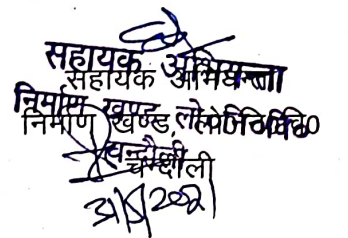 सहायक अभियन्ता
निर्माण खण्ड, लो०नि०वि०
चन्दौली